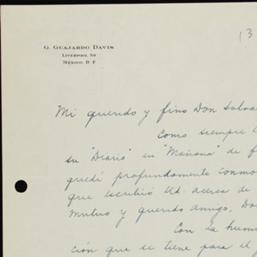 13
G. Guajardo Davis
Liverpool 59
Mexico. D F
Mi querido y fino Don Salva
Como siempre l
su "Diario" en "Mañana" de f
quedé profundamente conmo
que escribió Ud. acerca de
mutuo y querido amigo, Do
Con la hum
ción que se tiene para el